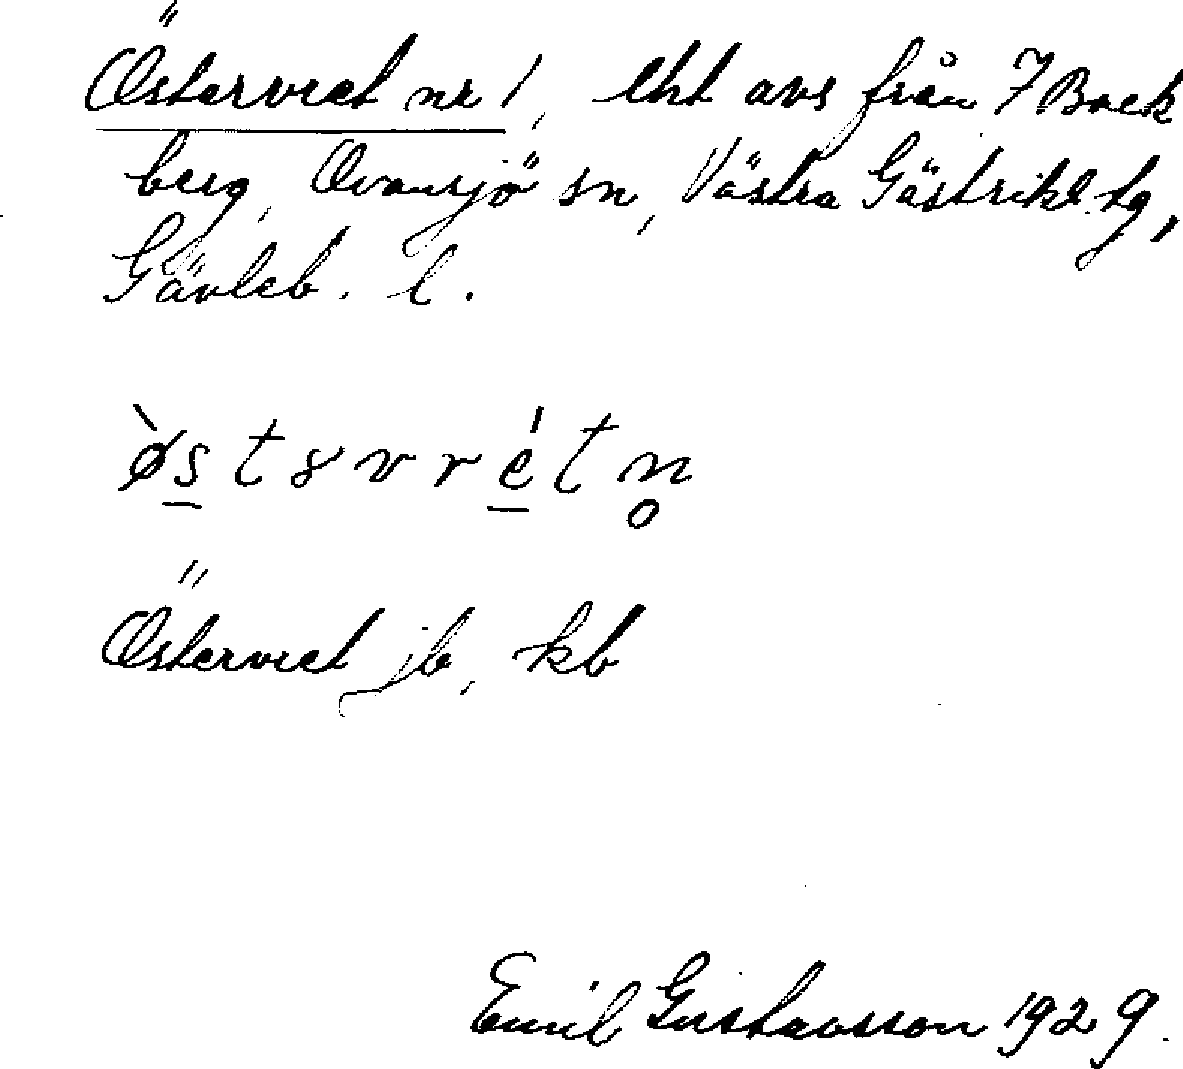 Östervret nr 1, lht avs från 7 Back
berg, Ovansjö sn, Västra Gästrikl. tg,
Gävleb. l.
ø̀s̠tɤvré̠tn̥
Östervret jb, kb
Emil Gustavsson 1929.